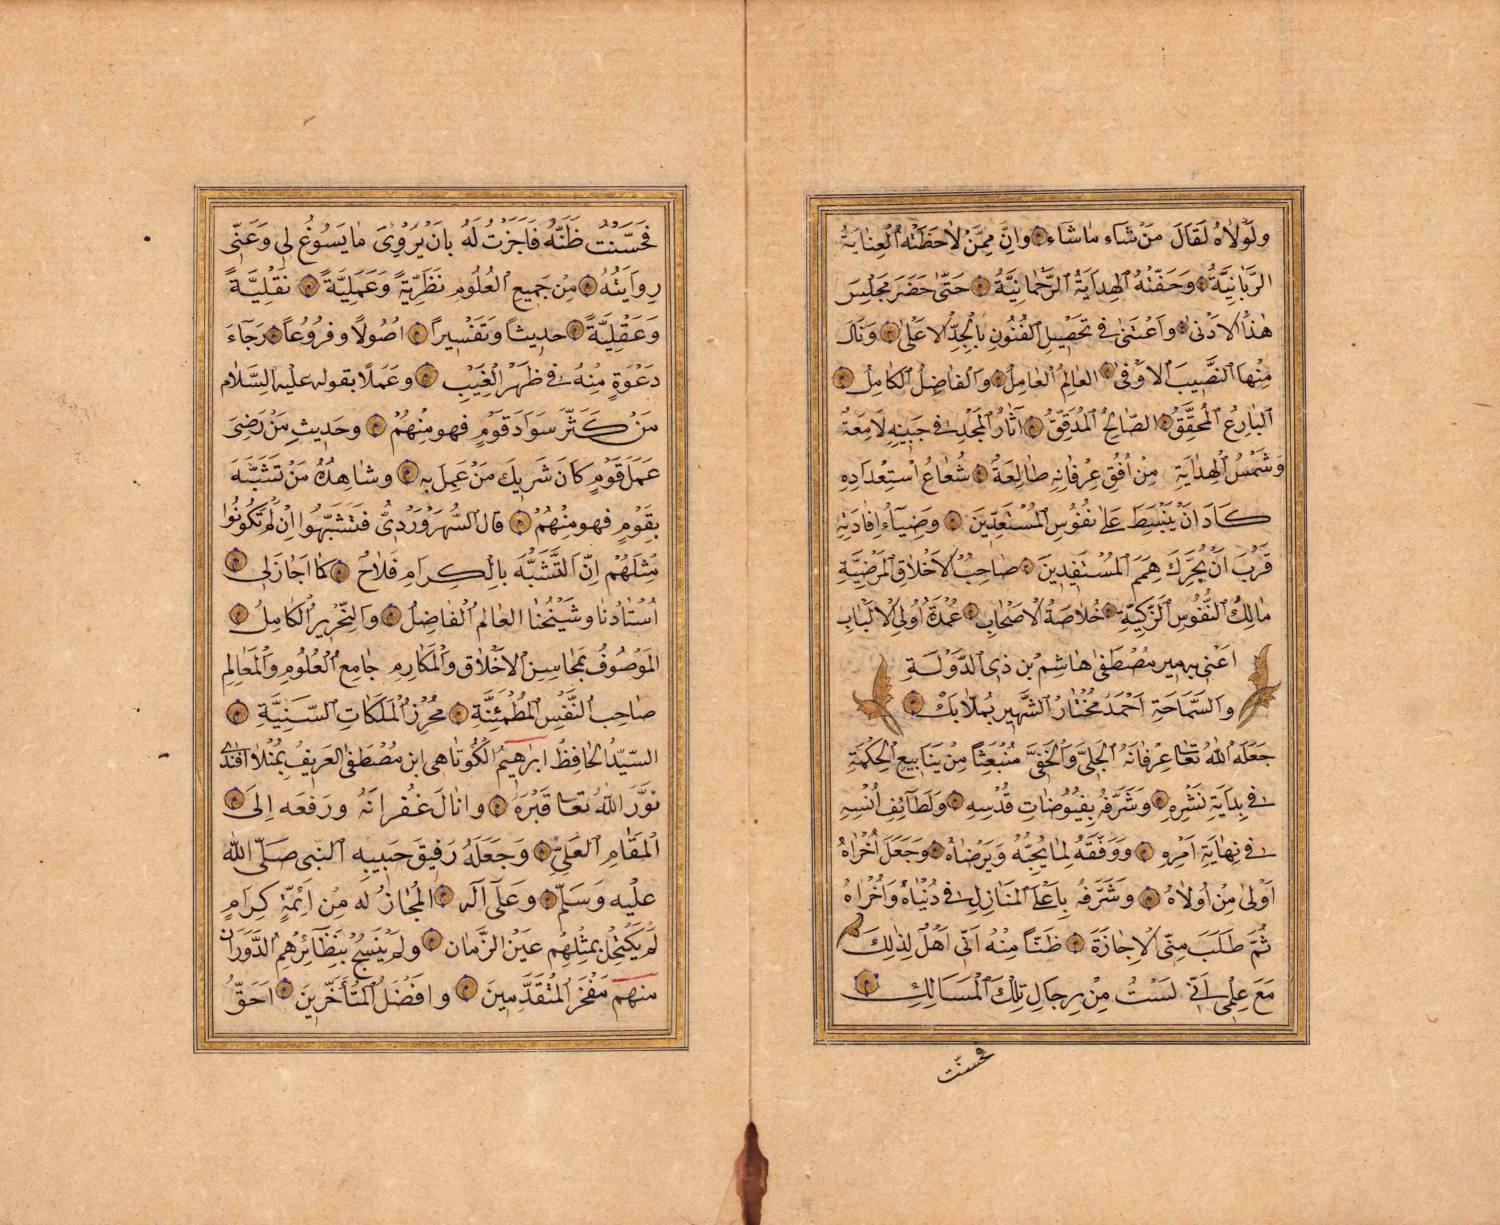 ولَوْلَاهُ لَقَالَ مَنْ شَاء مَا شَاء وانَّ مِمَّنْ لَاحَظَتْهُ الْعِنَايَةُ
الرَّبَّانِيَّةُ وَحَفَّتْهُ الْهِدَايَةُ الرَّحْمَانِيَّةُ حَتّٰى حَضَرَ مَجْلِسَ
هٰذَا الادْنٰى واعْتَنٰى فى تَحْصِيلِ الفُنُونِ بِالْجِدِّ الاعْلٰى وَنَالَ
مِنْهَا النَّصِيبَ الاوْفٰى العَالِمُ العَامِلُ وَالفَاضِلُ الكَامِلُ
البَارِعُ المُحَقِّقُ الصَّالِحُ المُدَقِّقُ آثَارُ المَجْدِ فى جَبِينِهِ لَامِعَةُ
وَشَمْسُ الْهِدَايَةِ مِنْ اُفُقِ عِرْفَانِهِ طَالِعَةُ شُعَاعُ اسْتِعْدَادِهِ
كَادَ اَنْ يَنْبَسِطَ عَلىٰ نفُوسِ المُسْتَعِدِّينَ وَضِيَآءُ اِفَادَتِهِ
قَرُبَ اَنْ يُحَرِّكَ هِمَمَ الْمُسْتَفِدِينَ صَاحِبُ الاَخْلَاقِ المَرْضِيَّةِ
مَالِكُ النُّفُوسِ الزَّكِيَّةِ خُلَاصَةُ الاصْحَابِ عُمْدَةُ اُولِى الالْبَابِ
اعْنى به مير مُصْطَفٰى هَاشِم بن ذِى الدَّوْلَةِ
وَالسَّمَاحَةِ اَحْمَدْ مُخْتَارْ الشَّهِير بُملَا بَكْ
جَعَلَ اللهُ تعَا عِرْفَانَهُ الْجَلِيَّ وَالْخَفِيَّ مُنْبَعِثًا مِنْ يَنَابِيعِ الْحِكْمَةِ
فى بِدَايَةِ نَشْرِهِ وَشَرَّفَهُ بِفِيُوضَاتِ قُدْسِهِ وَلَطَآئِفِ اُنْسِهِ
فى نِهَايَةِ اَمْرِهِ وَوَفَّقَهُ لِمَا يُحِبُّهُ وَيَرْضَاهُ وَجَعَلَ اُخْرَاهُ
اَوْلٰى مِنْ اُولَاهُ وَشَرَّفَهُ بِاَعْلَى المَنَازِلِ فى دُنْيَاهُ وَاُخْرَاهُ
ثُمَّ طَلَبَ مِنّى الاِجَازَةَ ظَنًّا مِنْهُ اَنّى اَهْلٌ لِذٰلِكَ
مَعَ عِلْمِى اَنّى لَسْتُ مِنْ رِجَالِ تِلْكَ الْمَسَالِكِ
فحسنت
فَحَسَّنْتُ ظَنَّهُ فَاَجَزْتُ لَهُ بانْ يَرْوِىَ مَا يَسُوغُ لى وَعَنّى
رِوَايَتُهُ مِنْ جَمِيعِ العُلُومِ نَظَرِيّةً وَعَمَلِيَّةً نَقْلِيَّةً
وَعَقْلِيَّةً حدِيثاً وَتَفْسِيراً اُصُولاً وفرُوعاً رَجَآءَ
دَعْوَةٍ مِنْهُ فى ظَهْرِ الْغَيْبِ وعَمَلًا بقوله عليه السَّلَام
مَنْ كَثَّرَ سَوَادَ قَوْمٍ فهو مِنْهُمْ وحَدِيثِ مَنْ رَضِىَ
عَمَلَ قَوْمٍ كَانَ شَرِيكَ مَنْ عَمِلَ بِهِ وشَاهِدُهُ مَنْ تَشَبَّهَ
بِقَوْمٍ فهو مِنْهُمْ قال السُّهْرَوَرْدِىُّ فَتَشَبَّهُوا اِنْ لَمْ تَكُونُوا
مِثْلَهُمْ اِنَّ التَّشَبُّهَ بِالْكِرَامِ فَلَاحُ كَمَا اَجَازَلِى
اُسْتَاذُنَا وشَيْخُنَا العَالم الْفَاضِلُ وَالنِّحْرِيرُ الْكَامِلُ
المَوْصُوفُ بمَحَاسِنِ الاَخْلَاقِ وَالْمَكَارِمِ جَامِعُ الْعُلُومِ وَالْمَعَالِمِ
صَاحِبُ النَّفْسِ المُطْمَئِنَّةِ مُحْرِزُ الْمَلَكَاتِ السَّنِيَّةِ
السّيّدُ الحَافِظُ ابرٰهِيمُ الْكُوتَاهى ابن مُصْطَفٰى العَرِيفُ بمُنْلَا افَنْدِى
نوَّرَ اللهُ تعَا قَبْرَهُ وانَالَ غُفْرَانَهُ ورَفَعَه اِلَى
الْمَقَامِ العَلِىِّ وَجَعَلَهُ رَفِيقَ حَبِيبِهِ النَّبِى صَلّى الله
عليْه وَسَلّمَ وعَلٰى آله المُجَازُ له مِنْ اَئِمَّةٍ كِرَامٍ
لَمْ يَكْتَحِلْ بمثْلِهمْ عَيْنُ الزَّمَان ولم يَنْسِجْ بنَظَائِرِهِمُ الدَّوَرَان
منهم مَفْخَرُ الْمُتَقَدِّمِينَ وافضَلُ المُتَأَخِّرِينَ اَحَقُّ